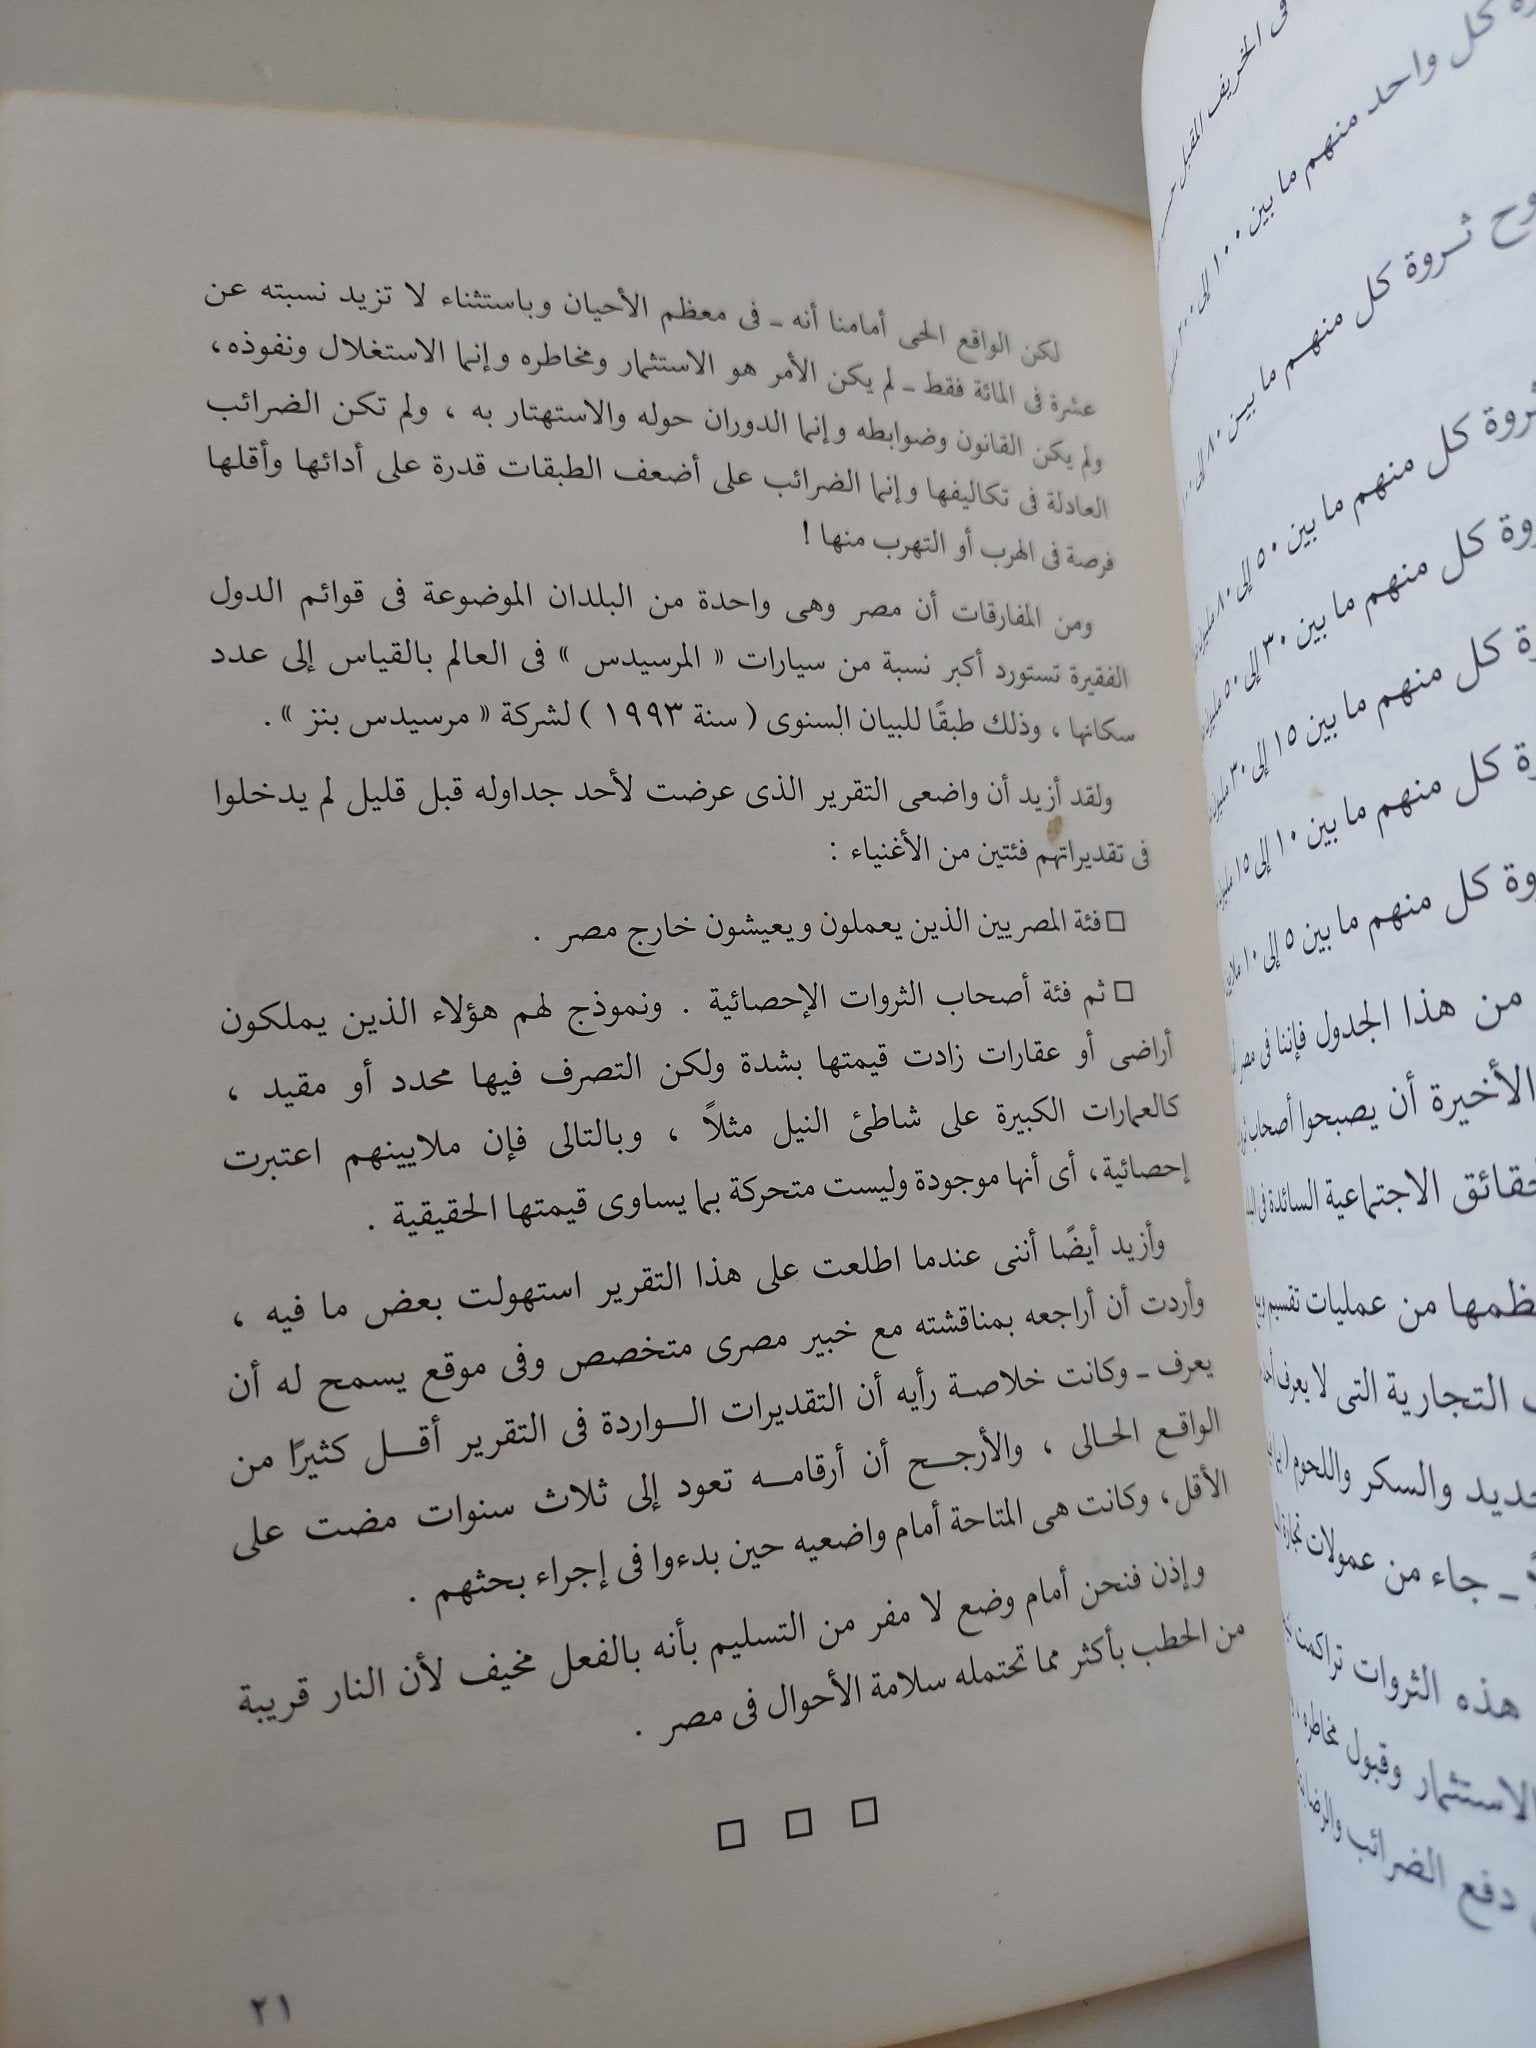 لكن الواقع الحى أمامنا أنه ـ فى معظم الأحيان وباستثناء لا تزيد نسبته عن
عشرة فى المائة فقط ـ لم يكن الأمر هو الاستثمار ومخاطره وإنما الاستغلال ونفوذه،
ولم يكن القانون وضوابطه وإنما الدوران حوله والاستهتار به ، ولم تكن الضرائب
العادلة فى تكاليفها وإنما الضرائب على أضعف الطبقات قدرة على أدائها وأقلها
فرصة فى الهرب أو التهرب منها !
ومن المفارقات أن مصر وهى واحدة من البلدان الموضوعة فى قوائم الدول
الفقيرة تستورد أكبر نسبة من سيارات « المرسيدس » فى العالم بالقياس إلى عدد
سكانها ، وذلك طبقًا للبيان السنوى ( سنة ١٩٩٣ ) لشركة « مرسيدس بنز » .
ولقد أزيد أن واضعى التقرير الذى عرضت لأحد جداوله قبل قليل لم يدخلوا
فى تقديراتهم فئتين من الأغنياء :
□ فئة المصريين الذين يعملون ويعيشون خارج مصر .
□ ثم فئة أصحاب الثروات الإحصائية . ونموذج لهم هؤلاء الذين يملكون
أراضى أو عقارات زادت قيمتها بشدة ولكن التصرف فيها محدد أو مقيد ،
كالعمارات الكبيرة على شاطئ النيل مثلاً ، وبالتالى فإن ملايينهم اعتبرت
إحصائية، أى أنها موجودة وليست متحركة بما يساوى قيمتها الحقيقية .
وأزيد أيضًا أننى عندما اطلعت على هذا التقرير استهولت بعض ما فيه ،
وأردت أن أراجعه بمناقشته مع خبير مصرى متخصص وفى موقع يسمح له أن
يعرف ـ وكانت خلاصة رأيه أن التقديرات الواردة فى التقرير أقل كثيرًا من
الواقع الحالى ، والأرجح أن أرقامه تعود إلى ثلاث سنوات مضت على
الأقل، وكانت هى المتاحة أمام واضعيه حين بدءوا فى إجراء بحثهم .
وإذن فنحن أمام وضع لا مفر من التسليم بأنه بالفعل مخيف لأن النار قريبة
من الحطب بأكثر مما تحتمله سلامة الأحوال فى مصر .
□ □ □
٢١
فى الخريف المقبل
كل واحد منهم ما بين ١٠٠ إلى ٢٠٠
ثروة كل منهم ما بين ٨٠ إلى ١٠٠
كل منهم ما بين ٥٠ إلى ٨٠
كل منهم ما بين ٣٠ إلى ٥٠
كل منهم ما بين ١٥ إلى ٣٠
كل منهم ما بين ١٠ إلى ١٥
كل منهم ما بين ٥ إلى ١٠
من هذا الجدول فإننا فى مصر
الأخيرة أن يصبحوا أصحاب
الاجتماعية السائدة فى
من عمليات تقسيم
التجارية التى لا يعرف
والسكر واللحوم
ـ جاء من عمولات تجارة
هذه الثروات تراكمت
الاستثمار وقبول مخاطره
دفع الضرائب